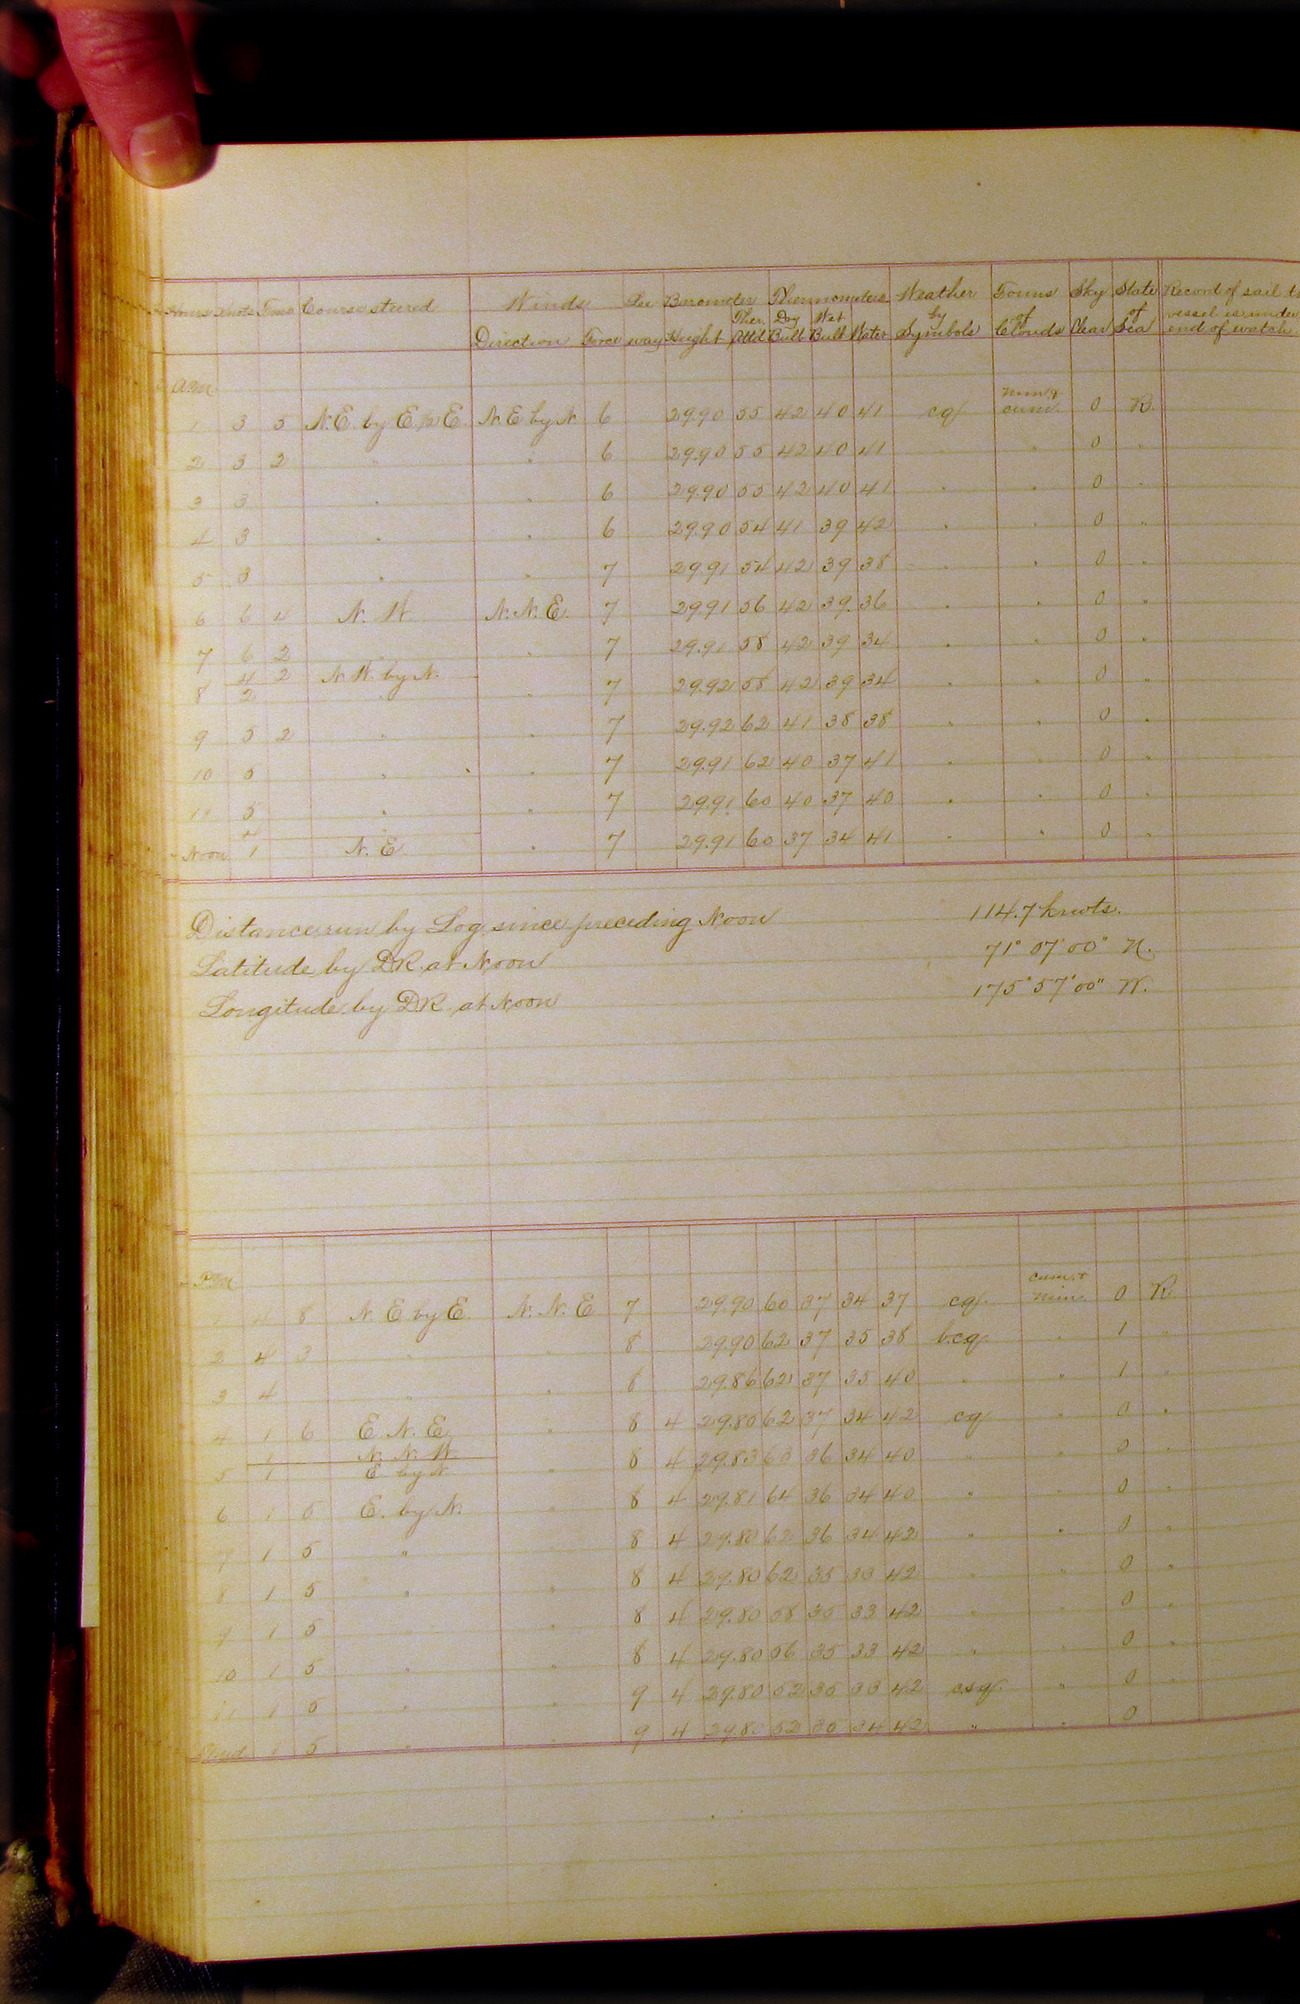 Hours Knots Course steered Winds Lee Barometer Thermometers Weather Forms Sky State Record of sail
Direction Force way Height Ther. Attd Dry Bulb Wet Bulb Water by Symbols of Clouds Clear of Sea vessel is under end of watch
A.M.
1 3 5 N.E. by E. 1/2 E. N.E. by N. 6 29.90 55 42 40 41 cq nim & cum. 0 R.
2 3 2 " " 6 29.90 55 42 40 41 " " 0 "
3 3 " " 6 29.90 55 42 40 41 " " 0 "
4 3 " " 6 29.90 54 41 39 42 " " 0 "
5 3 " " 7 29.91 54 42 39 38 " " 0 "
6 6 4 N. W. N. N. E. 7 29.91 56 42 39 36 " " 0 "
7 6 2 " " 7 29.91 58 42 39 34 " " 0 "
4 2 N. W. by N.
8 2 " " 7 29.92 58 42 39 34 " " 0 "
9 5 2 " " 7 29.92 62 41 38 38 " " 0 "
10 5 " " 7 29.91 62 40 37 41 " " 0 "
11 5 " " 7 29.91 60 40 37 40 " " 0 "
4
Noon 1 N. E. " 7 29.91 60 37 34 41 " " 0 "
Distance run by Log since preceding Noon 114.7 knots.
Latitude by D.R. at Noon 71° 07' 00" N.
Longitude by D.R. at Noon 175° 57' 00" W.
P.M.
1 4 8 N. E. by E. N. N. E. 7 29.90 60 37 34 37 cq. cum. & nim. 0 R.
2 4 3 " " 8 29.90 62 37 35 38 bcq " 1 "
3 4 " " 8 29.86 62 37 35 40 " " 1 "
4 1 6 E. N. E. " 8 4 29.80 62 37 34 42 cq " 0 "
1 N. N. W.
5 1 E. by N. " 8 4 29.83 63 36 34 40 " " 0 "
6 1 5 E. by N. " 8 4 29.81 64 36 34 40 " " 0 "
7 1 5 " " 8 4 29.80 62 36 34 42 " " 0 "
8 1 5 " " 8 4 29.80 62 35 33 42 " " 0 "
9 1 5 " " 8 4 29.80 58 35 33 42 " " 0 "
10 1 5 " " 8 4 29.80 56 35 33 42 " " 0 "
11 1 5 " " 9 4 29.80 52 35 33 42 csq. " 0 "
Mid 1 5 " " 9 4 29.80 52 35 34 42 " " 0